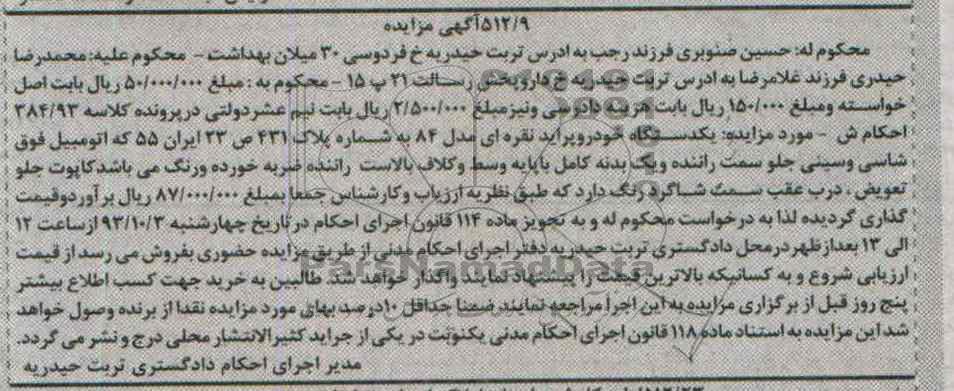 ۵۱۲/۹آگهی مزایده
محکوم له: حسین صنوبری فرزند رجب به ادرس تربت حیدریه خ فردوسی ۳۰ میلان بهداشت - محکوم علیه: محمدرضا
حیدری فرزند غلامرضا به ادرس تربت حیدریه خ فاروپخش رسالت ۲۱ پ ۱۵ - محکوم به : مبلغ ۵۰/۰۰۰/۰۰۰ ریال بابت اصل
خواسته ومبلغ ۱۵۰/۰۰۰ ریال بابت هزینه دادرسی ونیزمبلغ ۲/۵۰۰/۰۰۰ ریال بابت نیم عشردولتی درپرونده کلاسه ۳۸۴/۹۳
احکام ش - مورد مزایده: یکدستگاه خودروپراید نقره ای مدل ۸۴ به شماره پلاک ۴۳۱ ص ۲۳ ایران ۵۵ که اتومبیل فوق
شاسی وسینی جلو سمت راننده ویک بدنه کامل باپایه وسط وکلاف بالاست راننده ضربه خورده ورنگ می باشدکاپوت جلو
تعویض ، درب عقب سمت شاگرد رنگ دارد که طبق نظریه ارزیاب وکارشناس جمعا بمبلغ ۸۷/۰۰۰/۰۰۰ ریال برآوردوقیمت
گذاری گردیده لذا به درخواست محکوم له و به تجویز ماده ۱۱۴ قانون اجرای احکام در تاریخ چهارشنبه ۹۳/۱۰/۳ ازساعت ۱۲
الی ۱۳ بعدازظهر درمحل دادگستری تربت حیدریه دفتر اجرای احکام مدنی از طریق مزایده حضوری بفروش می رسد از قیمت
ارزیابی شروع و به کسانیکه بالاترین قیمت را پیشنهاد نمایند واگذار خواهد شد. طالبین به خرید جهت کسب اطلاع بیشتر
پنج روز قبل از برگزاری مزایده به این اجرا مراجعه نمایند ضمنا حداقل ۱۰درصد بهای مورد مزایده نقدا از برنده وصول خواهد
شداین مزایده به استناد ماده ۱۱۸ قانون اجرای احکام مدنی یکنوبت در یکی از جراید کثیرالانتشار محلی درج و نشر می گردد.
مدیر اجرای احکام دادگستری تربت حیدریه